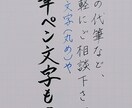 の代筆など、
軽にご相談下さ
文字(丸め)や
筆ペン文字も